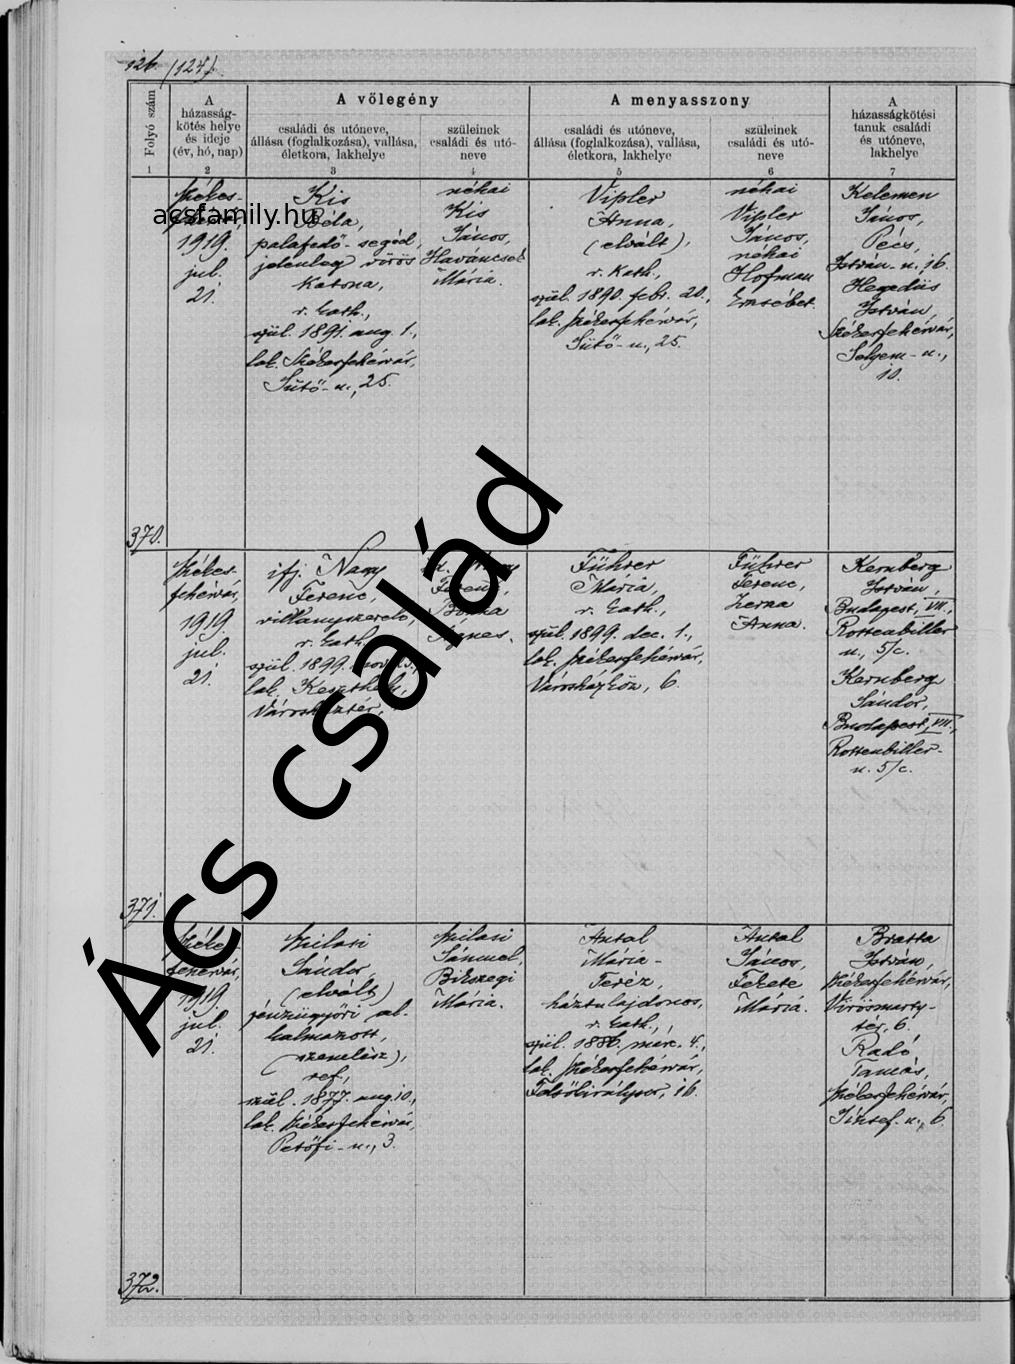 126. (127).
Folyó szám
A
házasság-
kötés helye
és ideje
(év, hó, nap)
A vőlegény
családi és utóneve,
állása (foglalkozása), vallása,
életkora, lakhelye
szüleinek
családi és utó-
neve
A menyasszony
családi és utóneve,
állása (foglalkozása), vallása,
életkora, lakhelye
szüleinek
családi és utó-
neve
A
házasságkötési
tanuk családi
és utóneve,
lakhelye
1
2
3
4
5
6
7
370.
Székes-
1919.
jul.
21.
Kis
Béla,
palafedő-segéd,
jelenleg vörös
katona,
r. kath.,
szül. 1891. aug. 1.,
lak. Székesfehérvár,
Sütő-u., 25.
néhai
Kis
János,
Mária.
Vipler
Anna,
(elvált),
r. kath.,
szül. 1890. febr. 20.,
lak. Székesfehérvár,
Sütő-u., 25.
néhai
Vipler
János,
néhai
Hofman
Erzsébet.
Kelemen
János,
Pécs,
István-u., 16.
Hegedüs
István,
Székesfehérvár,
Selyem-u.,
10.
371.
Székes-
fehérvár,
1919.
jul.
21.
ifj. Nagy
Ferenc,
villanyszerelő,
r. kath.,
szül. 1899.
lak. Keszthely,
Ferenc,
Führer
Mária,
r. kath.,
szül. 1899. dec. 1.,
lak. Székesfehérvár,
Városházköz, 6.
Führer
Ferenc,
Anna.
Kernberg
István,
Budapest, VII.,
Rottenbiller
u., 5/c.
Kernberg
Sándor,
Budapest, VII.,
Rottenbiller-
u. 5/c.
372.
fehérvár,
1919.
jul.
21.
Szilasi
Sándor,
(elvált)
pénzügyőri al-
kalmazott,
ref.,
szül. 1877. aug. 10.,
lak. Székesfehérvár,
Petőfi-u., 3.
Szilasi
Sámuel,
Mária.
Antal
Mária-
Teréz,
háztulajdonos,
r. kath.,
szül. 1886. márc. 4.,
lak. Székesfehérvár,
Felsőkirálysor, 16.
Antal
János,
Fekete
Mária.
Bratta
István,
Székesfehérvár,
Vörösmarty-
tér, 6.
Radó
Tamás,
Székesfehérvár,
József-u., 6.
acsfamily.hu
Ács család